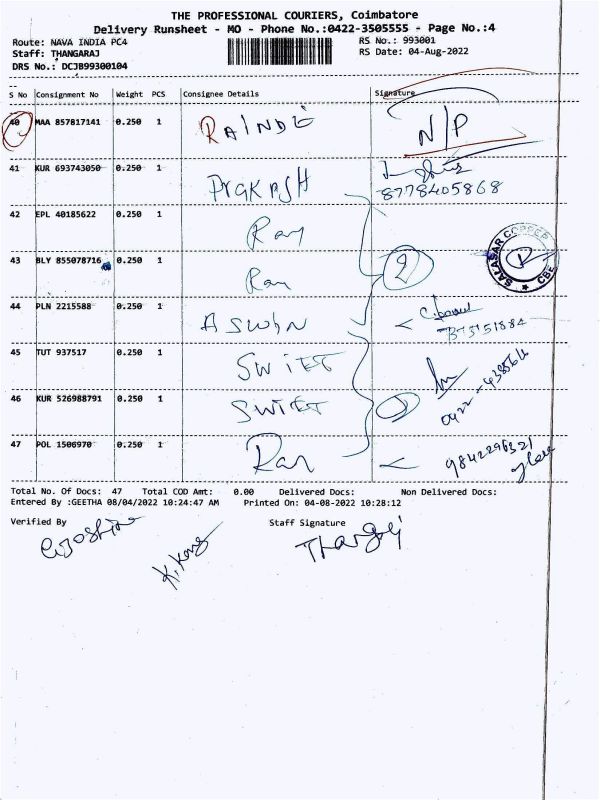 THE PROFESSIONAL COURIERS, Coimbatore
Delivery Runsheet - MO - Phone No.:0422-3505555 - Page No.:4
Route: NAVA INDIA PC4 RS No.: 993001
Staff: THANGARAJ RS Date: 04-Aug-2022
DRS No.: DCJB99300104
S No Consignment No Weight PCS Consignee Details Signature
40 MAA 857817141 0.250 1 RAINDE N/P
41 KUR 693743050 0.250 1 PRAKASH
8778405868
42 EPL 40185622 0.250 1 Ray
43 BLY 855078716 0.250 1 Ray 2 SALASAR COURIER CBE
44 PLN 2215588 0.250 1 ASWIN
45 TUT 937517 0.250 1 SWIET
46 KUR 526988791 0.250 1 SWIET
47 POL 1506970 0.250 1 Ray 9842296321
Total No. Of Docs: 47 Total COD Amt: 0.00 Delivered Docs: Non Delivered Docs:
Entered By :GEETHA 08/04/2022 10:24:47 AM Printed On: 04-08-2022 10:28:12
Verified By Staff Signature
Thangaj